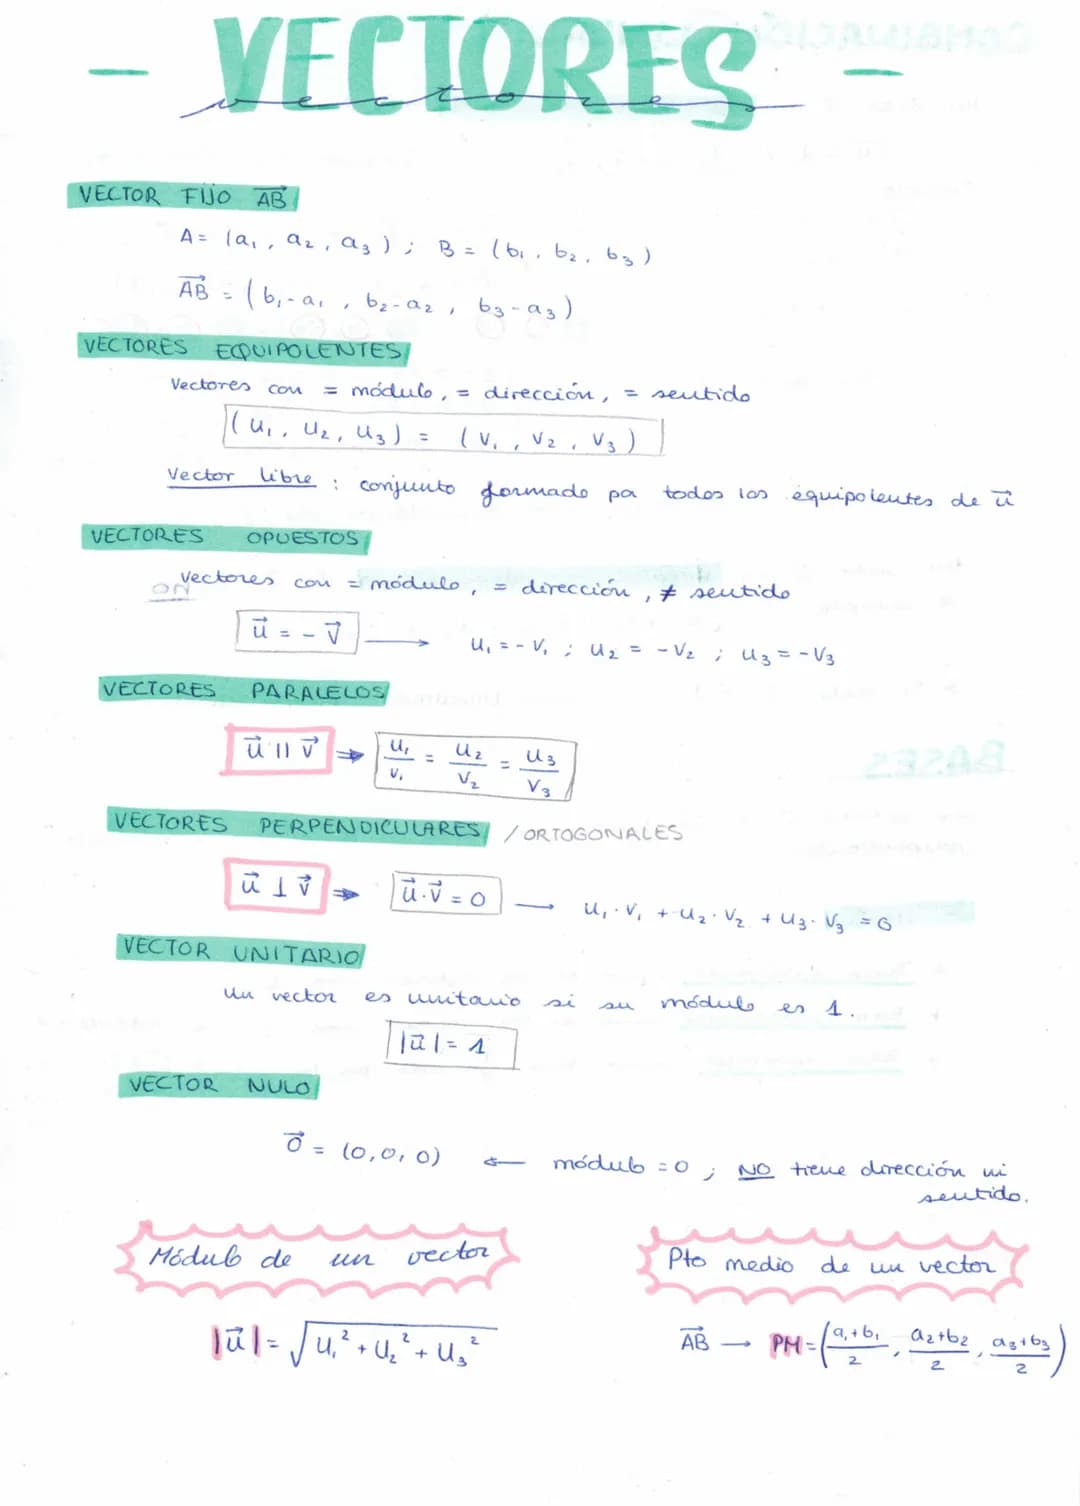 - VECTORES -
vectores
VECTOR FIJO $\overrightarrow{AB}$
A = (a₁, a₂, a₃) ; B = (b₁, b₂, b₃)
$\overrightarrow{AB}$ = (b₁-a₁, b₂-a₂, b₃-a₃)
VECTORES EQUIPOLENTES
Vectores con = módulo, = dirección, = sentido
(u₁, u₂, u₃) = (v₁, v₂, v₃)
Vector libre : conjunto formado po todos los equipolentes de $\vec{u}$
VECTORES OPUESTOS
Vectores con = módulo, = dirección, ≠ sentido
$\vec{u}$ = - $\vec{v}$ ⟶ u₁ = -v₁ ; u₂ = -v₂ ; u₃ = -v₃
VECTORES PARALELOS
$\vec{u}$ || $\vec{v}$ ⇒ $\frac{u_1}{v_1} = \frac{u_2}{v_2} = \frac{u_3}{v_3}$
VECTORES PERPENDICULARES / ORTOGONALES
$\vec{u}$ ⊥ $\vec{v}$ ⇒ $\vec{u}·\vec{v}$ = 0 ⟶ u₁·v₁ + u₂·v₂ + u₃·v₃ = 0
VECTOR UNITARIO
Un vector es unitario si su módulo es 1.
|$\vec{u}$| = 1
VECTOR NULO
$\vec{0}$ = (0,0,0) ← módulo = 0 ; NO tiene dirección ni
sentido.
Módulo de un vector
|$\vec{u}$| = $\sqrt{u_1^2 + u_2^2 + u_3^2}$
Pto medio de un vector
$\overrightarrow{AB}$ ⟶ PM = $\left(\frac{a_1+b_1}{2}, \frac{a_2+b_2}{2}, \frac{a_3+b_3}{2}\right)$